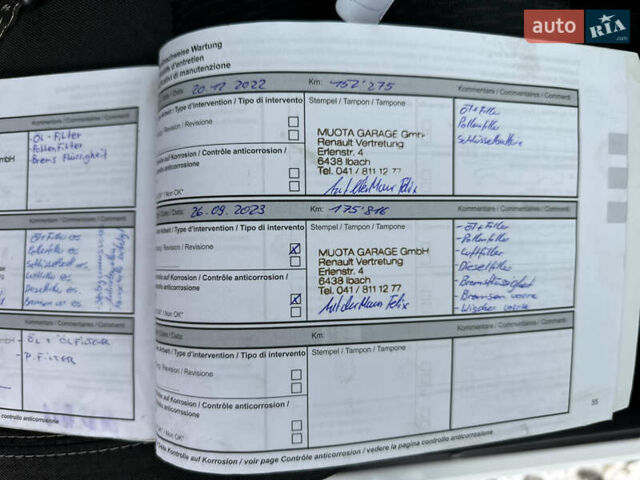 auto RIA .com
Kommentare / Commentaires / Commenti
- ÖL - Filter
- Pollenfilter
- Brems Flüssigkeit
Kommentare / Commentaires / Commenti
Kommentare / Commentaires / Commenti
- ÖL + ÖLFILTER
- P. FILTER
controllo anticorrosione
Nachweise Wartung
d'entretien
di manutenzione
Data: 20 12 2022
Km: 152'275
Kommentare / Commentaires / Commenti
Arbeit / Type d'intervention / Tipo di intervento
Revision / Revisione
auf Korrosion / Contrôle anticorrosion /
OK* / Non OK*
Stempel / Tampon / Tampone
MUOTA GARAGE GmbH
Renault Vertretung
Erlenstr. 4
6438 Ibach
Tel. 041 / 811 12 77
Öl + Filter
Pollenfilter
Schlüsselbatterie
Date / Data: 26.09.2023
Km: 175'816
Kommentare / Commentaires / Commenti
Arbeit / Type d'intervention / Tipo di intervento
Revision / Revisione
auf Korrosion / Contrôle anticorrosion /
OK* / Non OK*
Stempel / Tampon / Tampone
MUOTA GARAGE GmbH
Renault Vertretung
Erlenstr. 4
6438 Ibach
Tel. 041 / 811 12 77
- Öl + Filter
- Pollenfilter
- Luftfilter
- Dieselfilter
- Bremsflüssigkeit
- Bremsen vorne
- Wischer vorne
Date / Data:
Km:
Kommentare / Commentaires / Commenti
Arbeit / Type d'intervention / Tipo di intervento
Revision / Revisione
auf Korrosion / Contrôle anticorrosion /
OK* / Non OK*
Stempel / Tampon / Tampone
Seite Kontrolle auf Korrosion / voir page Contrôle anticorrosion / vedere la pagina controllo anticorrosione
55